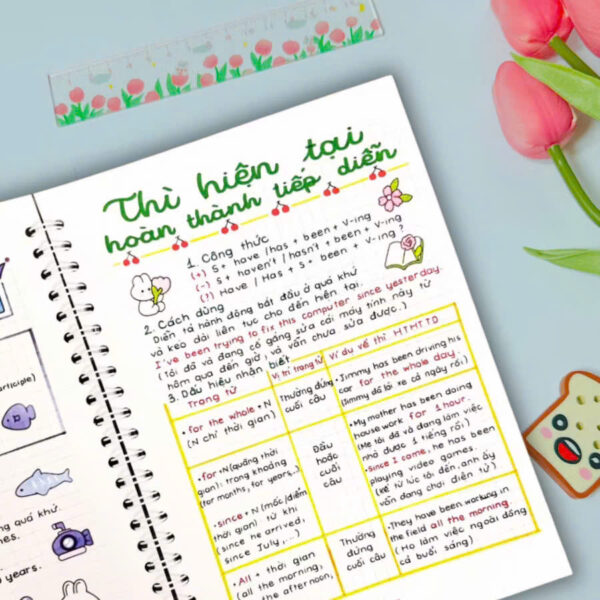 Thì hiện tại
hoàn thành tiếp diễn
1. Công thức
(+) S + have / has + been + V-ing
(-) S + haven't / hasn't + been + V-ing
(?) Have / Has + S + been + V-ing ?
2. Cách dùng
Diễn tả hành động bắt đầu ở quá khứ
và kéo dài liên tục cho đến hiện tại.
I've been trying to fix this computer since yesterday.
(Tôi đã và đang cố gắng sửa cái máy tính này từ
hôm qua đến giờ, và vẫn chưa sửa được.)
3. Dấu hiệu nhận biết
Trạng từ
Vị trí trạng từ
Ví dụ về thì HTHTTD
• for the whole + N
(N chỉ thời gian)
Thường đứng
cuối câu
• Jimmy has been driving his
car for the whole day.
(Jimmy đã lái xe cả ngày rồi)
• for + N (quãng thời
gian): trong khoảng
(for months, for years,..)
• since + N (mốc/điểm
thời gian): từ khi
(since he arrived,
since July,...)
Đầu
hoặc
cuối
câu
• My mother has been doing
house work for 1 hour.
(Mẹ tôi đã và đang làm việc
nhà được 1 tiếng rồi)
• Since I came, he has been
playing video games.
(Kể từ lúc tôi đến, anh ấy
vẫn đang chơi điện tử).
• All + thời gian
(all the morning,
the afternoon,
Thường
đứng
cuối câu
• They have been working in
the field all the morning.
(Họ làm việc ngoài đồng
cả buổi sáng)
articiple)
ng quá khứ.
nes.
0 years.